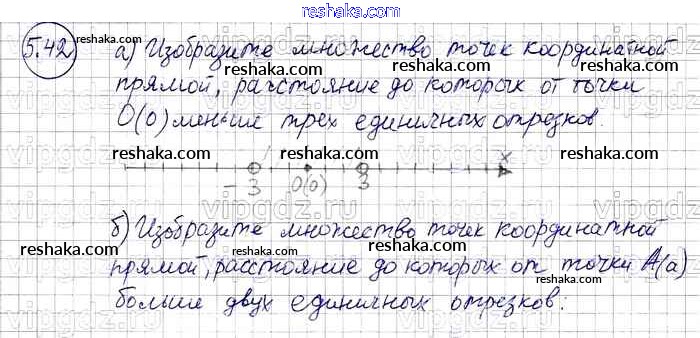 reshaka.com
5.42 а) Изобразите множество точек координатной
reshaka.com reshaka.com reshaka.com
прямой, расстояние до которых от точки
O(0) меньше трех единичных отрезков.
reshaka.com reshaka.com reshaka.com
x
-3 O(0) 3
reshaka.com reshaka.com
б) Изобразите множество точек координатной
reshaka.com reshaka.com reshaka.com
прямой, расстояние до которых от точки A(a)
больше двух единичных отрезков:
reshaka.com reshaka.com
vipgdz.ru